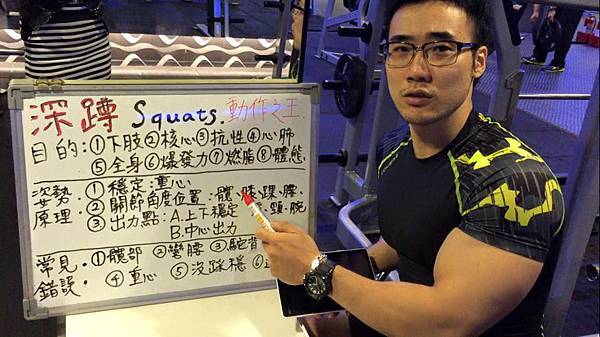 深蹲 Squats. 動作之王
目的:①下肢②核心③抗性④心肺
⑤全身⑥爆發力⑦燃脂⑧體態
姿勢原理:①穩定:重心
②關節角度位置:髖.膝.踝.腰.
③出力點:A.上下穩定 頸.腕
B.中心出力
常見錯誤:①髖部②彎腰③駝背
④重心⑤沒踩穩⑥